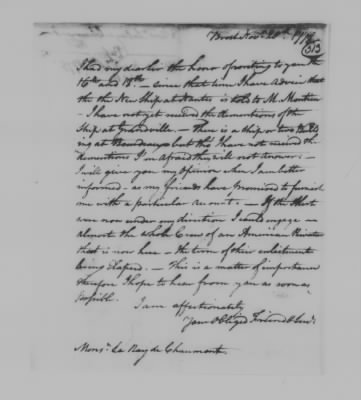 Brest Novr 20th 1777
313
I had my dear Sir the honor of writing to you the
16th and 18th. — Since that time I have advice that
the the New Ship at Nantes is sold to M. Montieu
— I have not yet received the dimentions of the
Ship at Grandville — there is a Ship or two Build-
ing at Bourdeaux but tho I have not received their
dimentions I'm afraid they will not answer. —
I will give you my Opinion when I am better
informed — as my friends have promised to furnish
me with a particular account. — If the Alert
was now under my direction I could engage
almost the whole Crew of an American Privateer
that is now here — the term of their enlistment
being elapsed. — This is a matter of importance
therefore I hope to hear from you as soon as
possible.
I am affectionately
Your Obliged Friend & Servt
Monsr Le Ray de Chaumont.